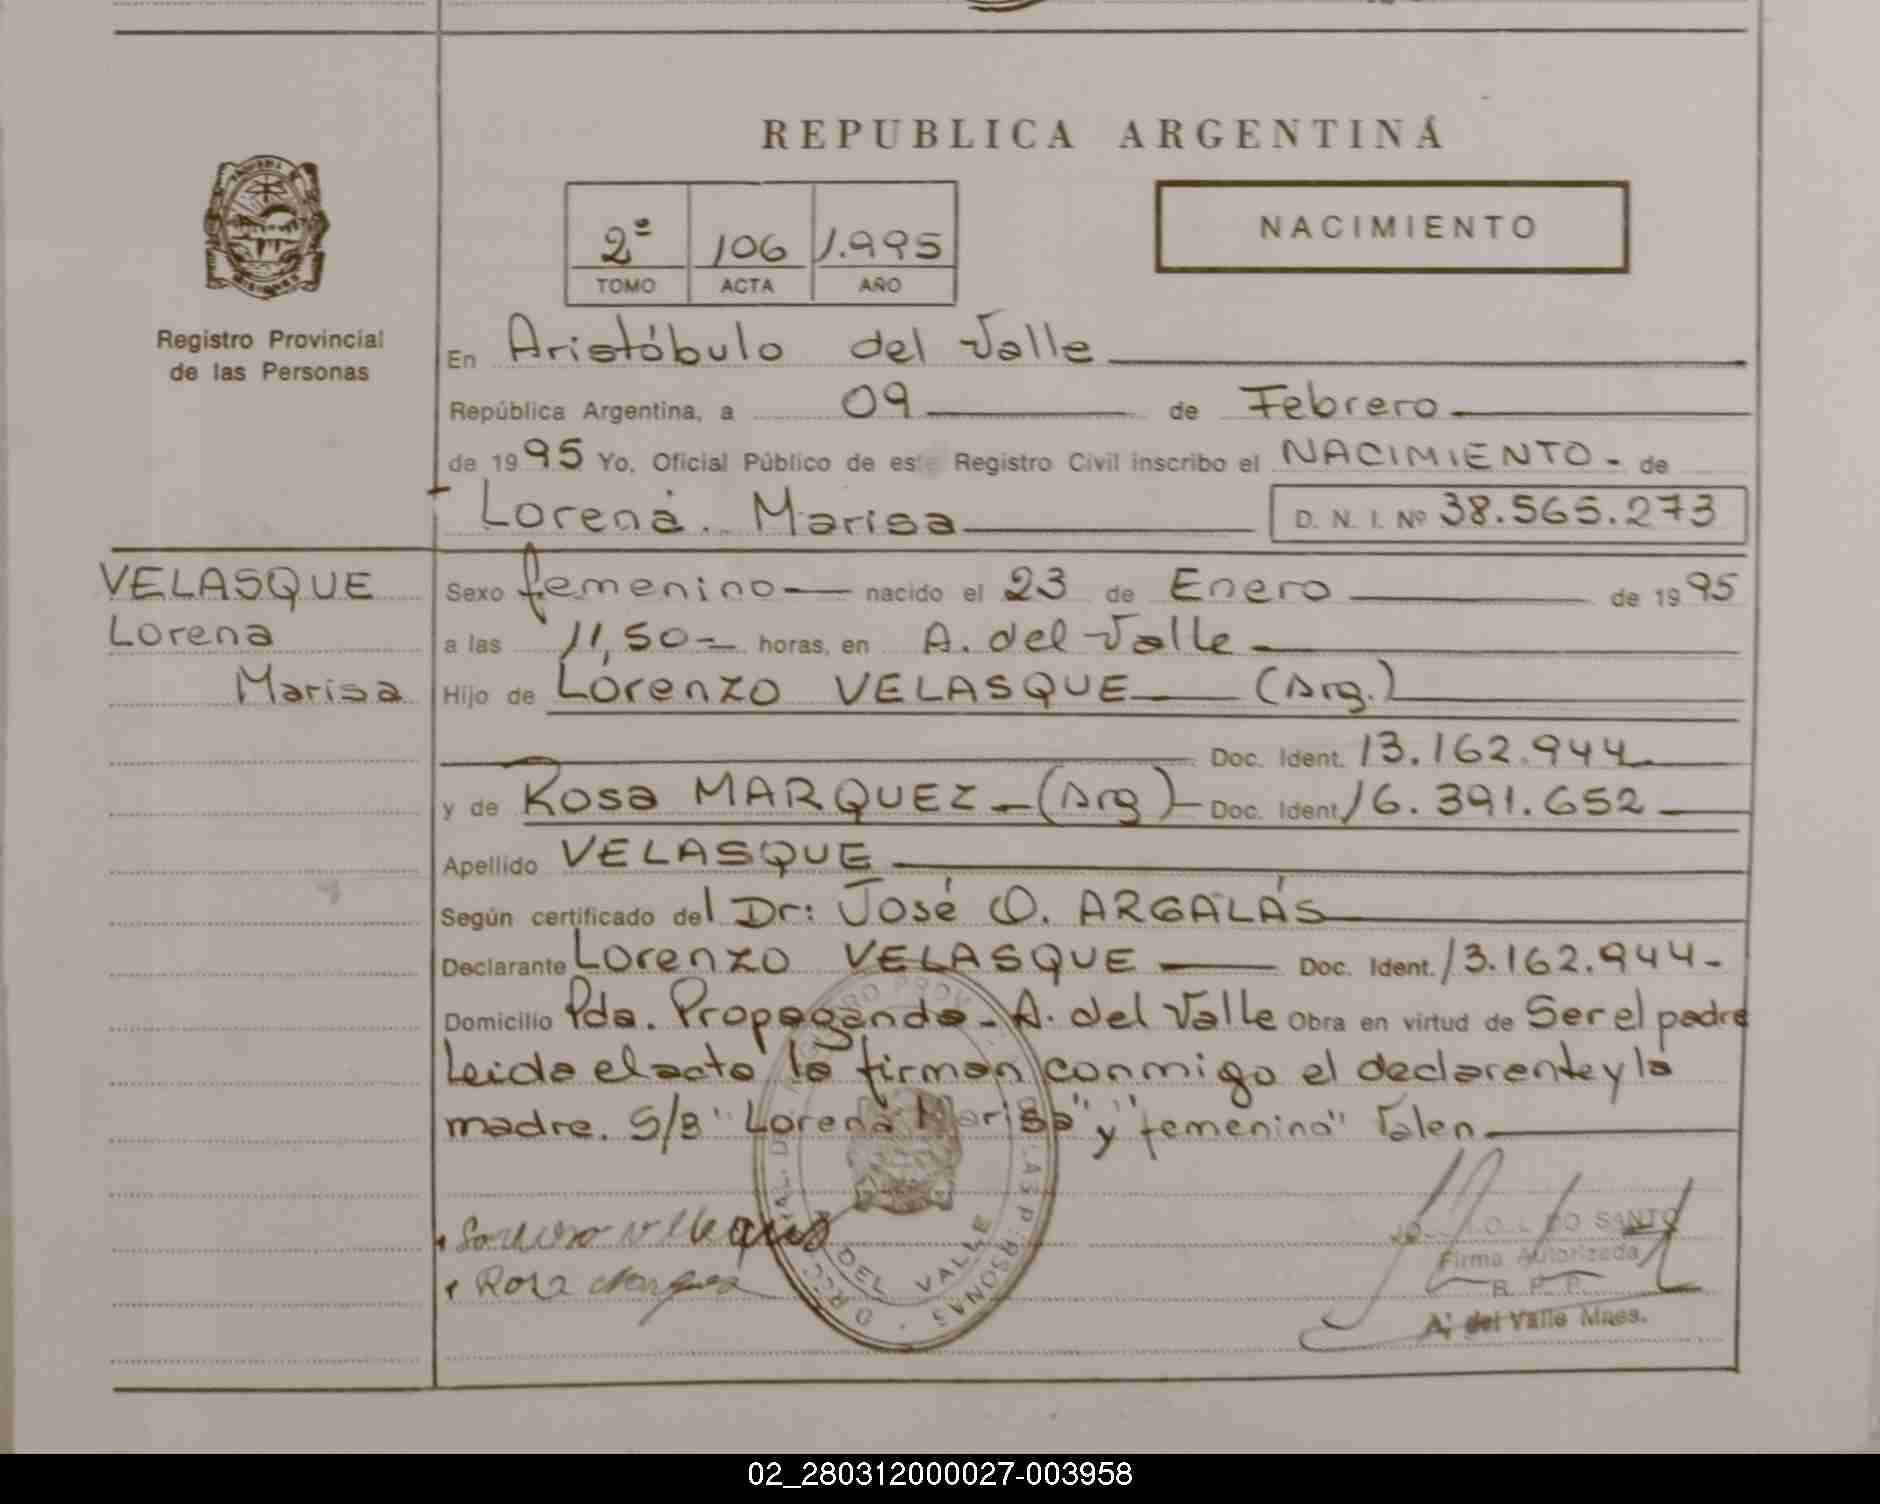 REPUBLICA ARGENTINA
2º 106 1.995
TOMO ACTA AÑO
NACIMIENTO
Registro Provincial
de las Personas
En Aristóbulo del Valle
República Argentina, a 09 de Febrero
de 1995 Yo, Oficial Público de este Registro Civil inscribo el NACIMIENTO - de
Lorena Marisa D. N. I. Nº 38.565.273
VELASQUE
Lorena
Marisa
Sexo femenino nacido el 23 de Enero de 1995
a las 11,50 horas, en A. del Valle
Hijo de Lorenzo VELASQUE (Arg.)
Doc. Ident. 13.162.944
y de Rosa MARQUEZ (Arg) Doc. Ident. 16.391.652
Apellido VELASQUE
Según certificado del Dr: José O. ARGALÁS
Declarante Lorenzo VELASQUE Doc. Ident. 13.162.944
Domicilio Pda. Propaganda - A. del Valle Obra en virtud de Ser el padre
Leida el acta la firman conmigo el declarante y la
madre. S/B "Lorena Marisa" y "femenino" Valen
DEL VALLE
Rosa
DO SANTO
Firma Autorizada
R. P. P.
A. del Valle Mnes.
02_280312000027-003958